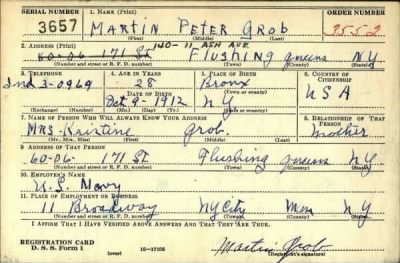 SERIAL NUMBER 1. NAME (Print) ORDER NUMBER
3657 MARTIN PETER GROB 3552
(First) (Middle) (Last)
2. ADDRESS (Print) 140-11 ASH AVE.
60-06 171 St Flushing Queens NY
(Number and street or R. F. D. number) (Town) (County) (State)
3. TELEPHONE 4. AGE IN YEARS 5. PLACE OF BIRTH 6. COUNTRY OF CITIZENSHIP
Ind 3-0969 28 Bronx
DATE OF BIRTH (Town or county) USA
Oct 9-1912 NY
(Exchange) (Number) (Mo.) (Day) (Yr.) (State or country)
7. NAME OF PERSON WHO WILL ALWAYS KNOW YOUR ADDRESS 8. RELATIONSHIP OF THAT PERSON
Mrs- Kristine Grob. mother
(Mr., Mrs., Miss) (First) (Middle) (Last)
9. ADDRESS OF THAT PERSON
60-06 171 St Flushing Queens NY
(Number and street or R. F. D. number) (Town) (County) (State)
10. EMPLOYER'S NAME
U.S. Navy
11. PLACE OF EMPLOYMENT OR BUSINESS
11 Broadway NY City Man NY
(Number and street or R. F. D. number) (Town) (County) (State)
I AFFIRM THAT I HAVE VERIFIED ABOVE ANSWERS AND THAT THEY ARE TRUE.
REGISTRATION CARD
D. S. S. Form 1 (over) 16-17105 Martin Grob
(Registrant's signature)